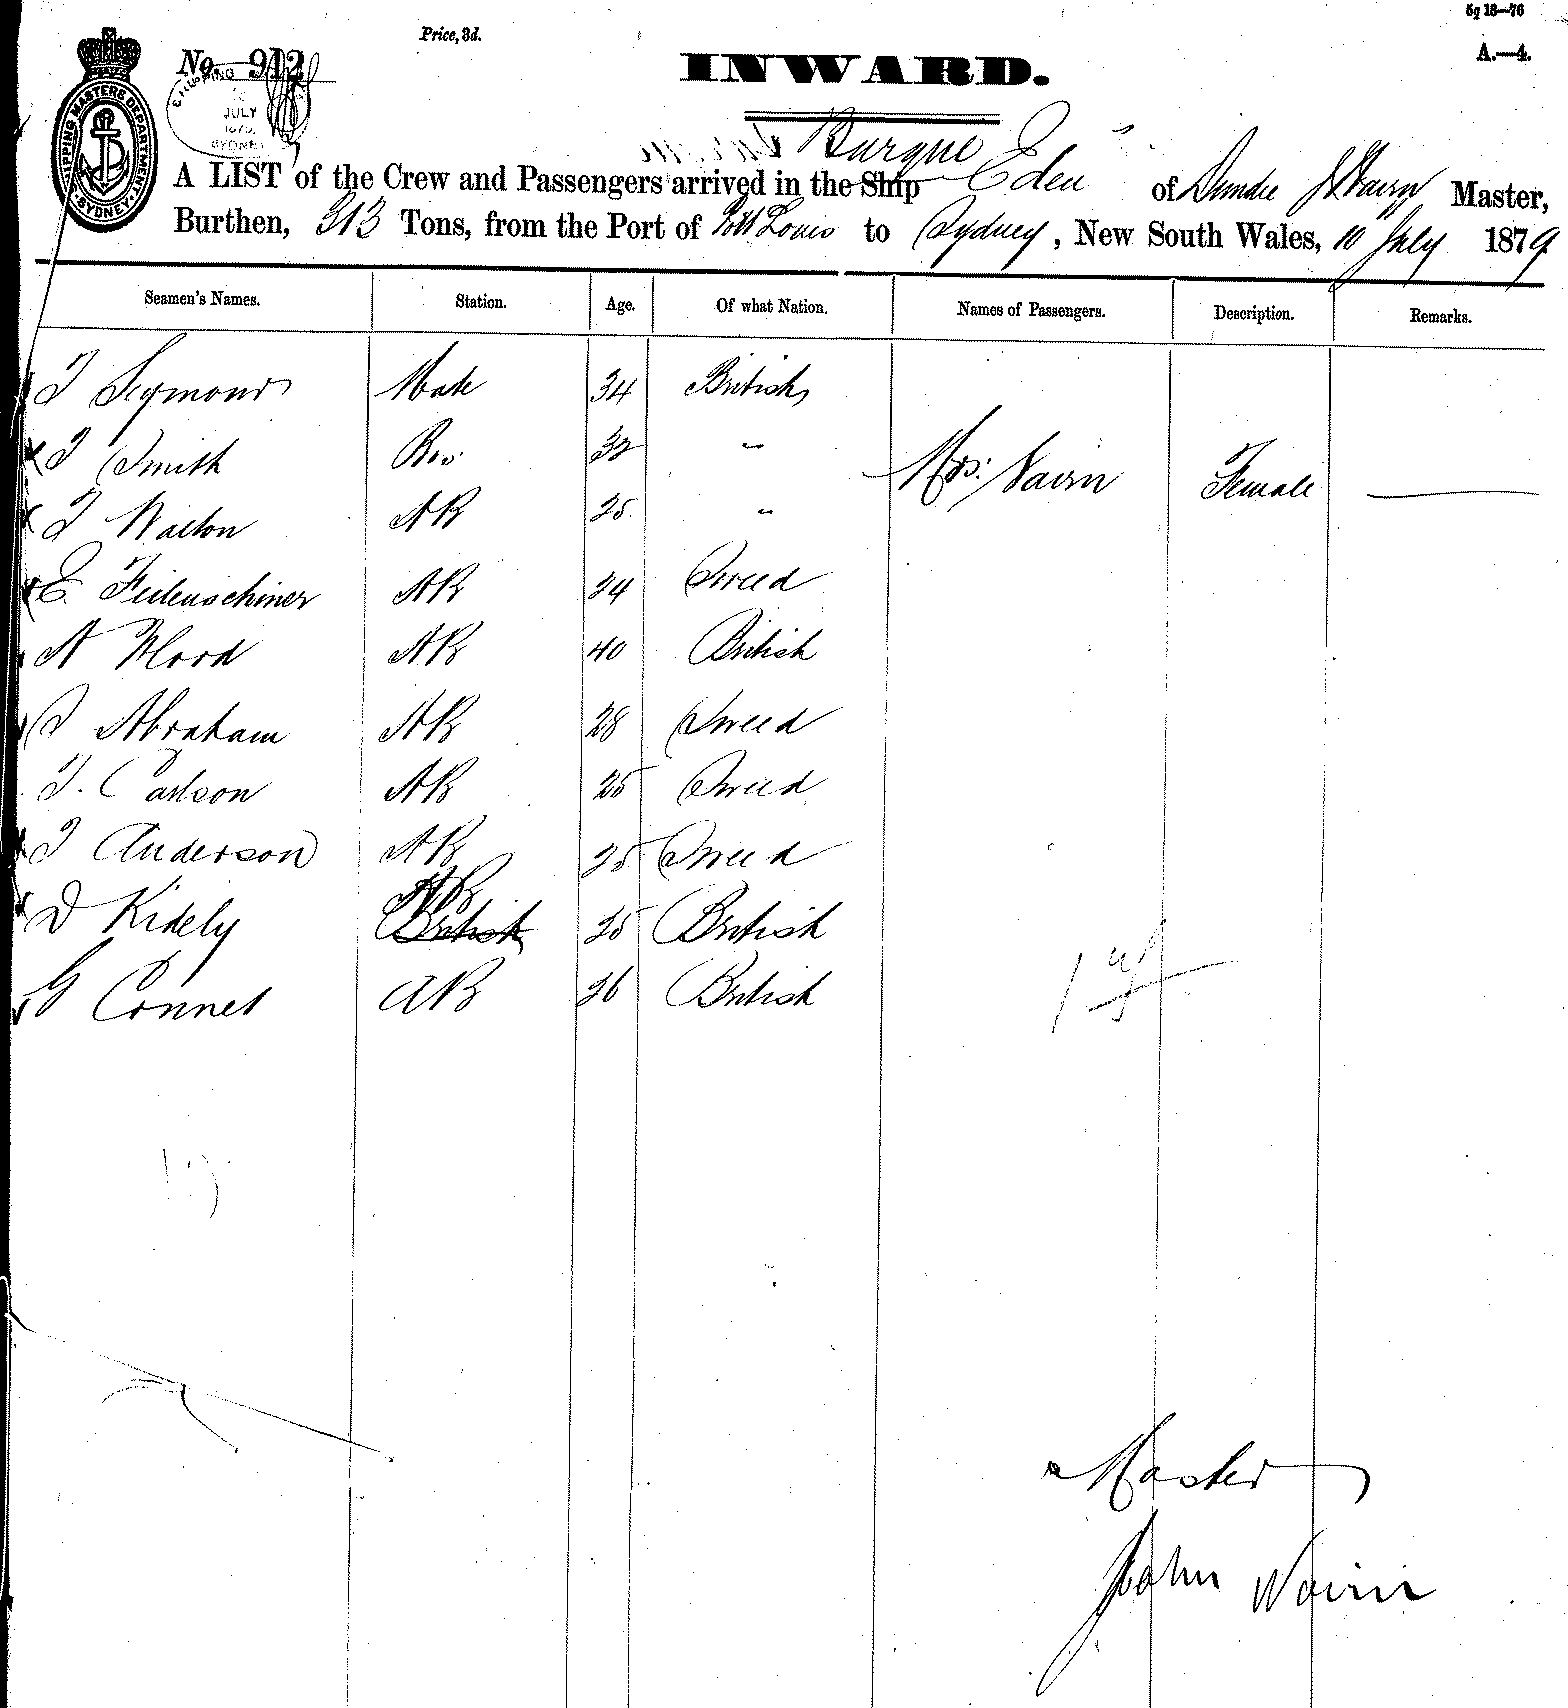 5g 18—76
Price, 3d.
A.—4.
No. 912
INWARD.
SHIPPING MASTERS DEPARTMENT
SYDNEY
SHIPPING
JULY
1879.
SYDNEY
Barque
A LIST of the Crew and Passengers arrived in the Ship Eden of Dundee J Nairn Master,
Burthen, 313 Tons, from the Port of Port Louis to Sydney, New South Wales, 10 July 1879
Seamen's Names. Station. Age. Of what Nation. Names of Passengers. Description. Remarks.
T Seymour Mate 34 British
T Smith Bos: 32 "
Mrs. Nairn Female
T Walton AB 25 "
E. AB 24 Sweed
A Wood AB 40 British
Abraham AB 28 Sweed
T. Carlson AB 25 Sweed
T Anderson AB 25 Sweed
AB
D Kidely British 25 British
G Connel AB 26 British
Master
John Nairn